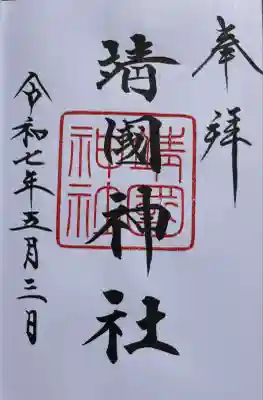 奉拝
靖國神社
靖國
神社
令和七年五月三日